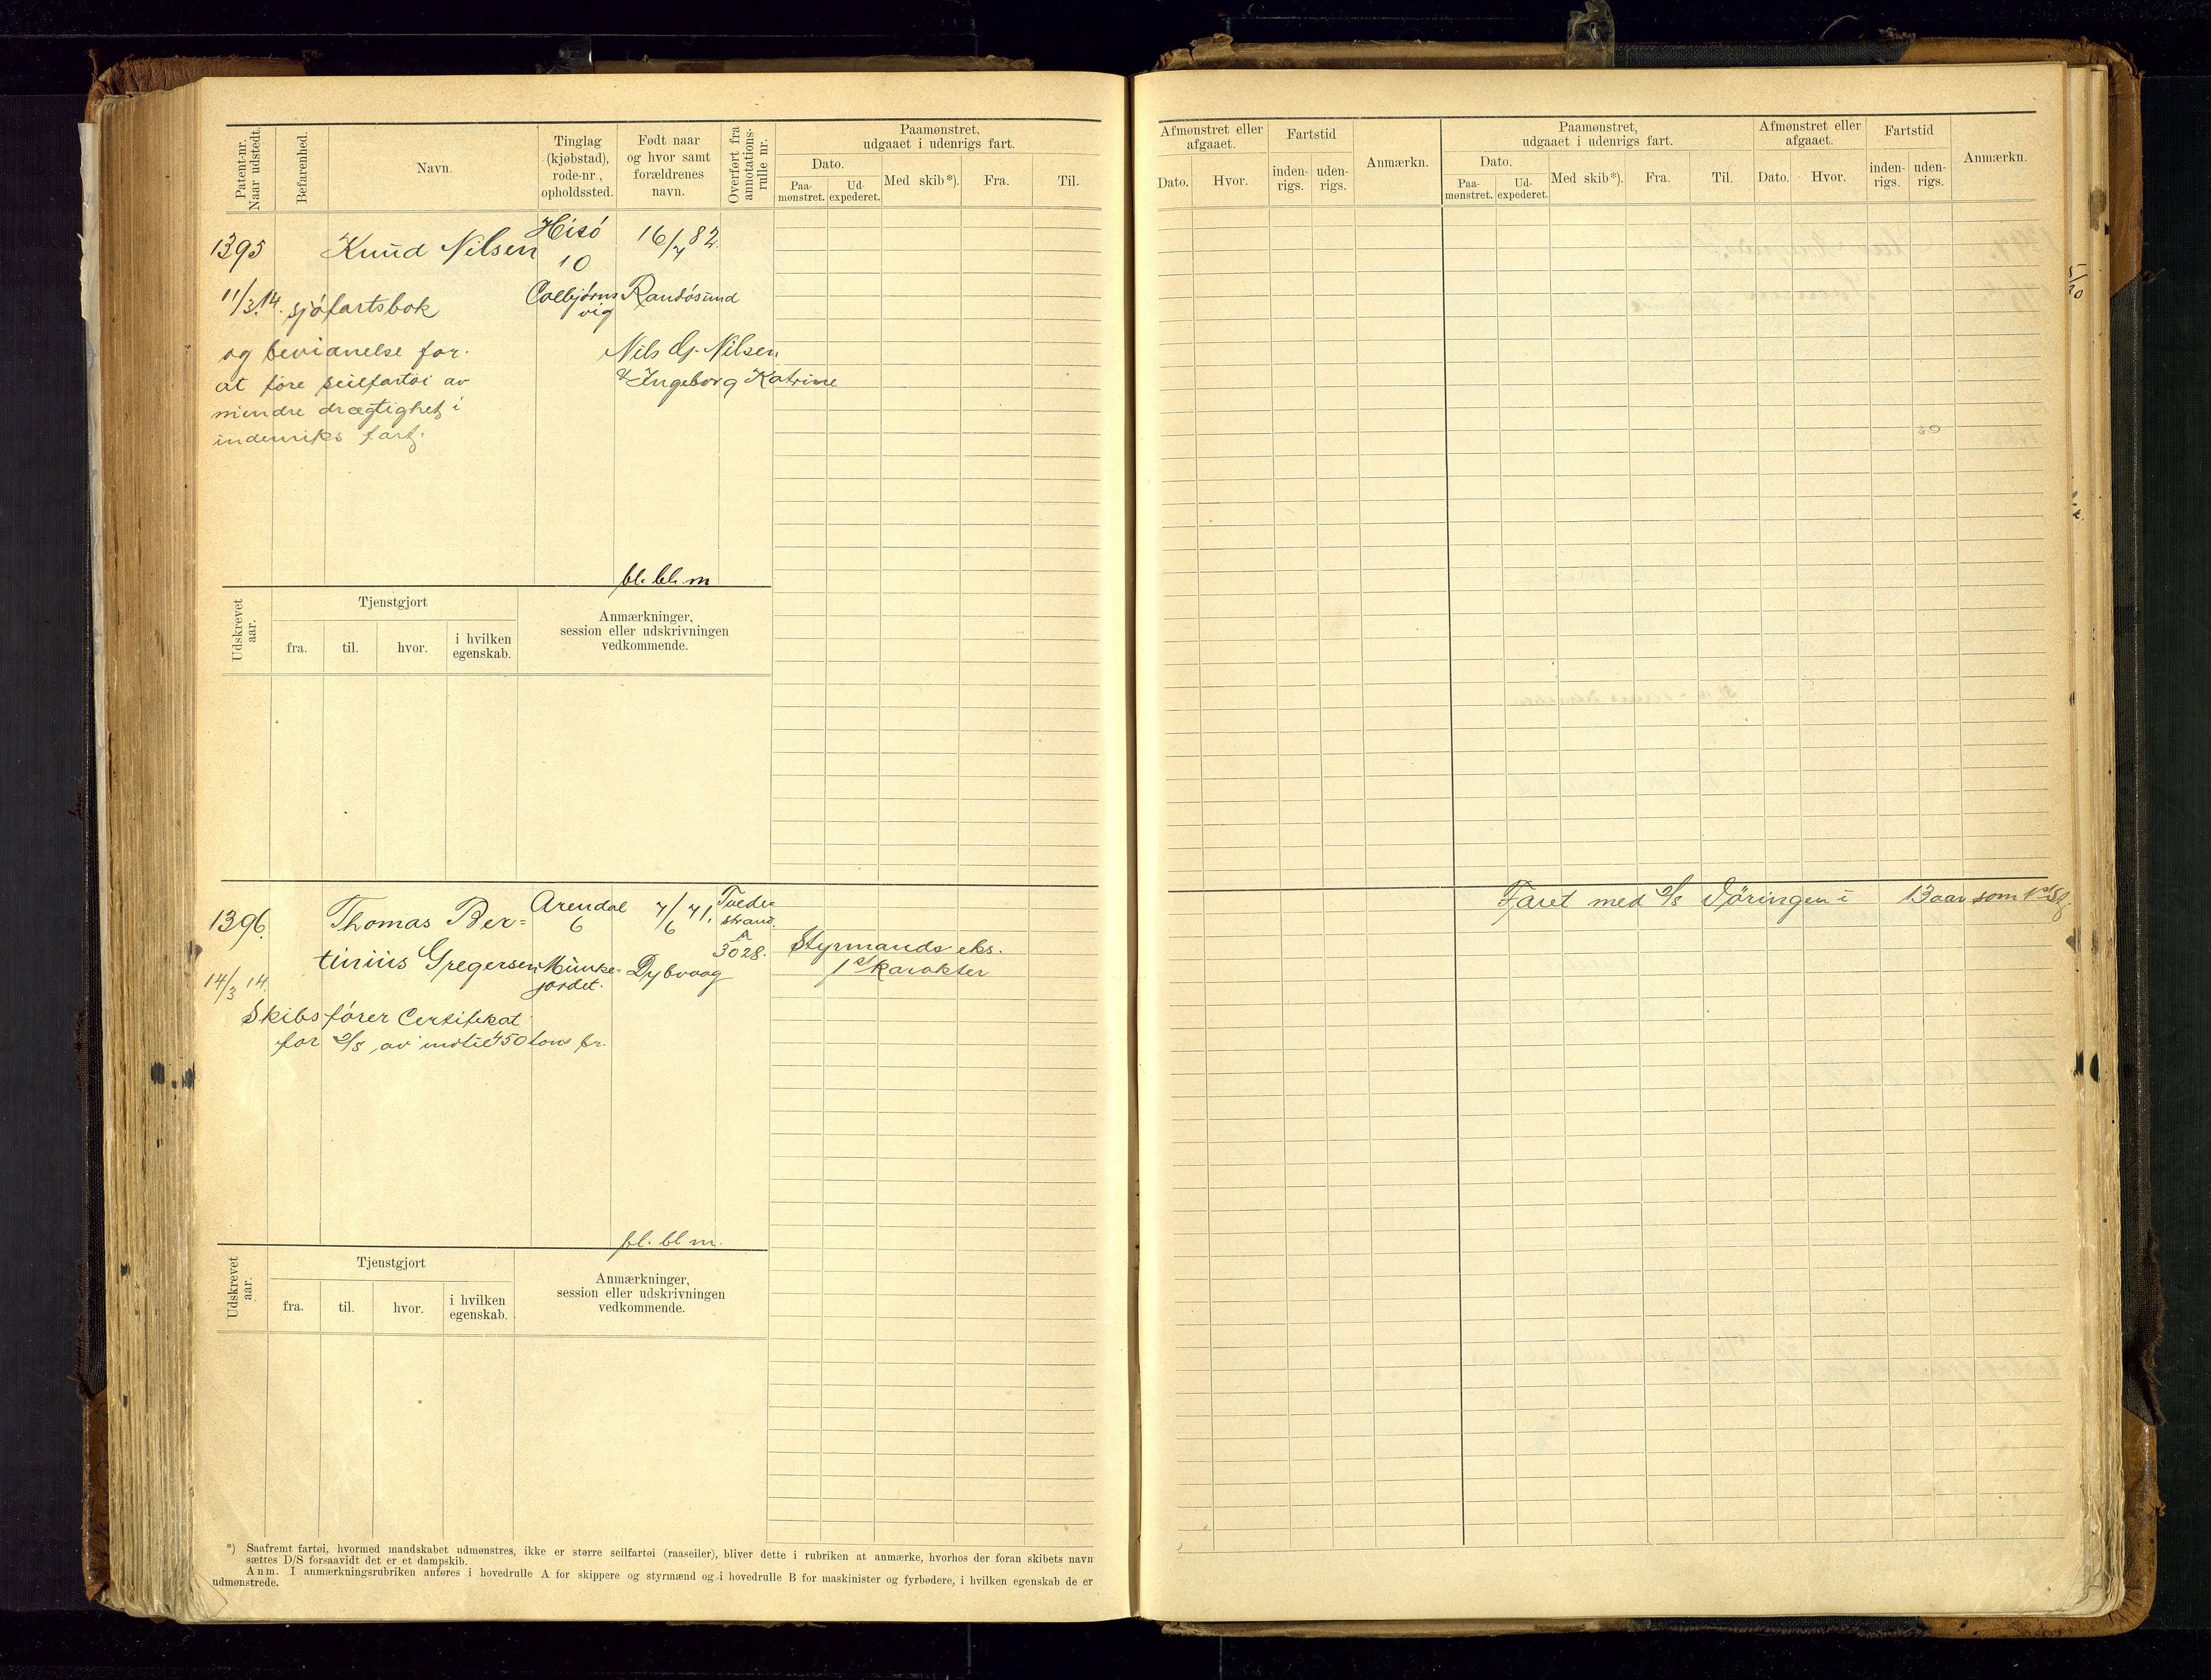 Patent-nr.
Naar udstedt.
Befarenhed.
Navn.
Tinglag
(kjøbstad),
rode-nr.,
opholdssted.
Født naar
og hvor samt
forældrenes
navn.
Overført fra
annotations-
rulle nr.
Paamønstret,
udgaaet i udenrigs fart.
Dato.
Paa-
mønstret.
Ud-
expederet.
Med skib*).
Fra.
Til.
1395
Knud Nilsen
Hisö
10
16/7 82.
11/3 14.
sjöfartsbok
Colbjörns
vig
Randösund
og bevidnelse for
at före seilfartöi av
mindre drægtighet i
indenriks fart.
Nils Gj. Nilsen
& Ingeborg Katrine
bl. bl. m
Udskrevet
aar.
Tjenstgjort
fra.
til.
hvor.
i hvilken
egenskab.
Anmærkninger,
session eller udskrivningen
vedkommende.
1396.
Thomas Ber=
tinius Gregersen
Arendal
6
Munke=
jordet.
7/6 71.
Dybvaag
Tvede=
strand.
A
3028.
Styrmands eks.
1st karakter
14/3 14.
Skibsförer Certifikat
for D/S av indtil 450 tons br.
bl. bl m.
Udskrevet
aar.
Tjenstgjort
fra.
til.
hvor.
i hvilken
egenskab.
Anmærkninger,
session eller udskrivningen
vedkommende.
*) Saafremt fartøi, hvormed mandskabet udmønstres, ikke er større seilfartøi (raaseiler), bliver dette i rubriken at anmærke, hvorhos der foran skibets navn
sættes D/S forsaavidt det er et dampskib.
Anm. I anmærkningsrubriken anføres i hovedrulle A for skippere og styrmænd og i hovedrulle B for maskinister og fyrbødere, i hvilken egenskab de er
udmønstrede.
Afmønstret eller
afgaaet.
Dato.
Hvor.
Fartstid
inden-
rigs.
uden-
rigs.
Anmærkn.
Paamønstret,
udgaaet i udenrigs fart.
Dato.
Paa-
mønstret.
Ud-
expederet.
Med skib*).
Fra.
Til.
Afmønstret eller
afgaaet.
Dato.
Hvor.
Fartstid
inden-
rigs.
uden-
rigs.
Anmærkn.
Faret med D/S Vöringen i 13 aar som 1st St.